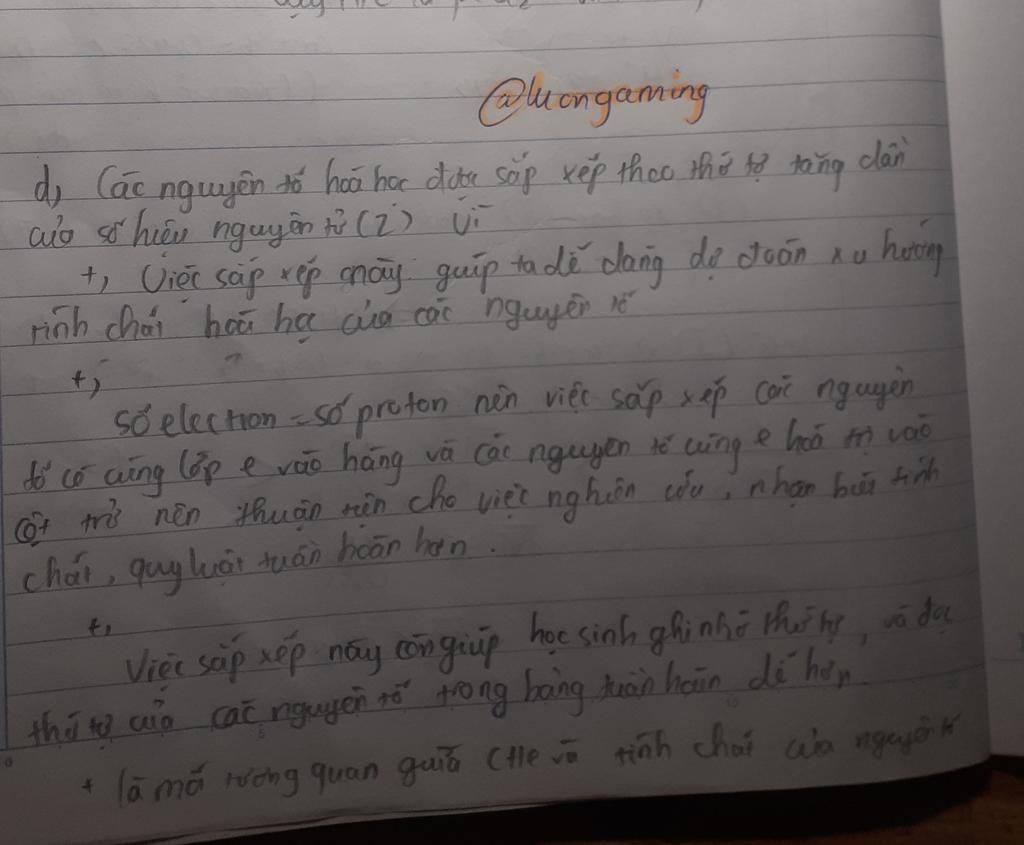 @luongaming
d, Các nguyên tố hoá học được sắp xếp theo thứ tự tăng dần
của số hiệu nguyên tử (Z) vì
+, Việc sắp xếp này giúp ta dễ dàng dự đoán xu hướng
tính chất hoá học của các nguyên tố
+,
số electron = số proton nên việc sắp xếp các nguyên
tố có cùng lớp e vào hàng và các nguyên tố cùng e hoá trị vào
cột trở nên thuận tiện cho việc nghiên cứu, nhận biết tính
chất, quy luật tuần hoàn hơn.
+,
Việc sắp xếp này còn giúp học sinh ghi nhớ thứ tự, và đọc
thứ tự của các nguyên tố trong bảng tuần hoàn dễ hơn
+ là mối tương quan giữa CHe và tính chất của nguyên tố